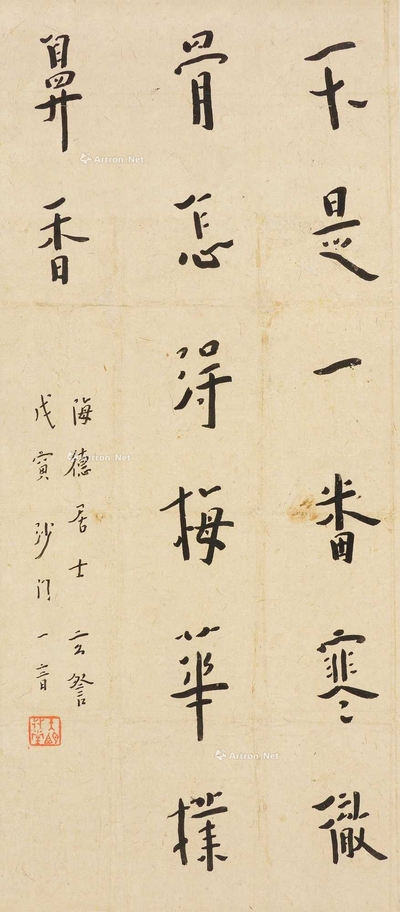 不是一番寒徹
骨怎得梅華撲
鼻香
海德居士玄詧
戊寅沙門一音
Artron.Net
Artron.Net
Artron.Net